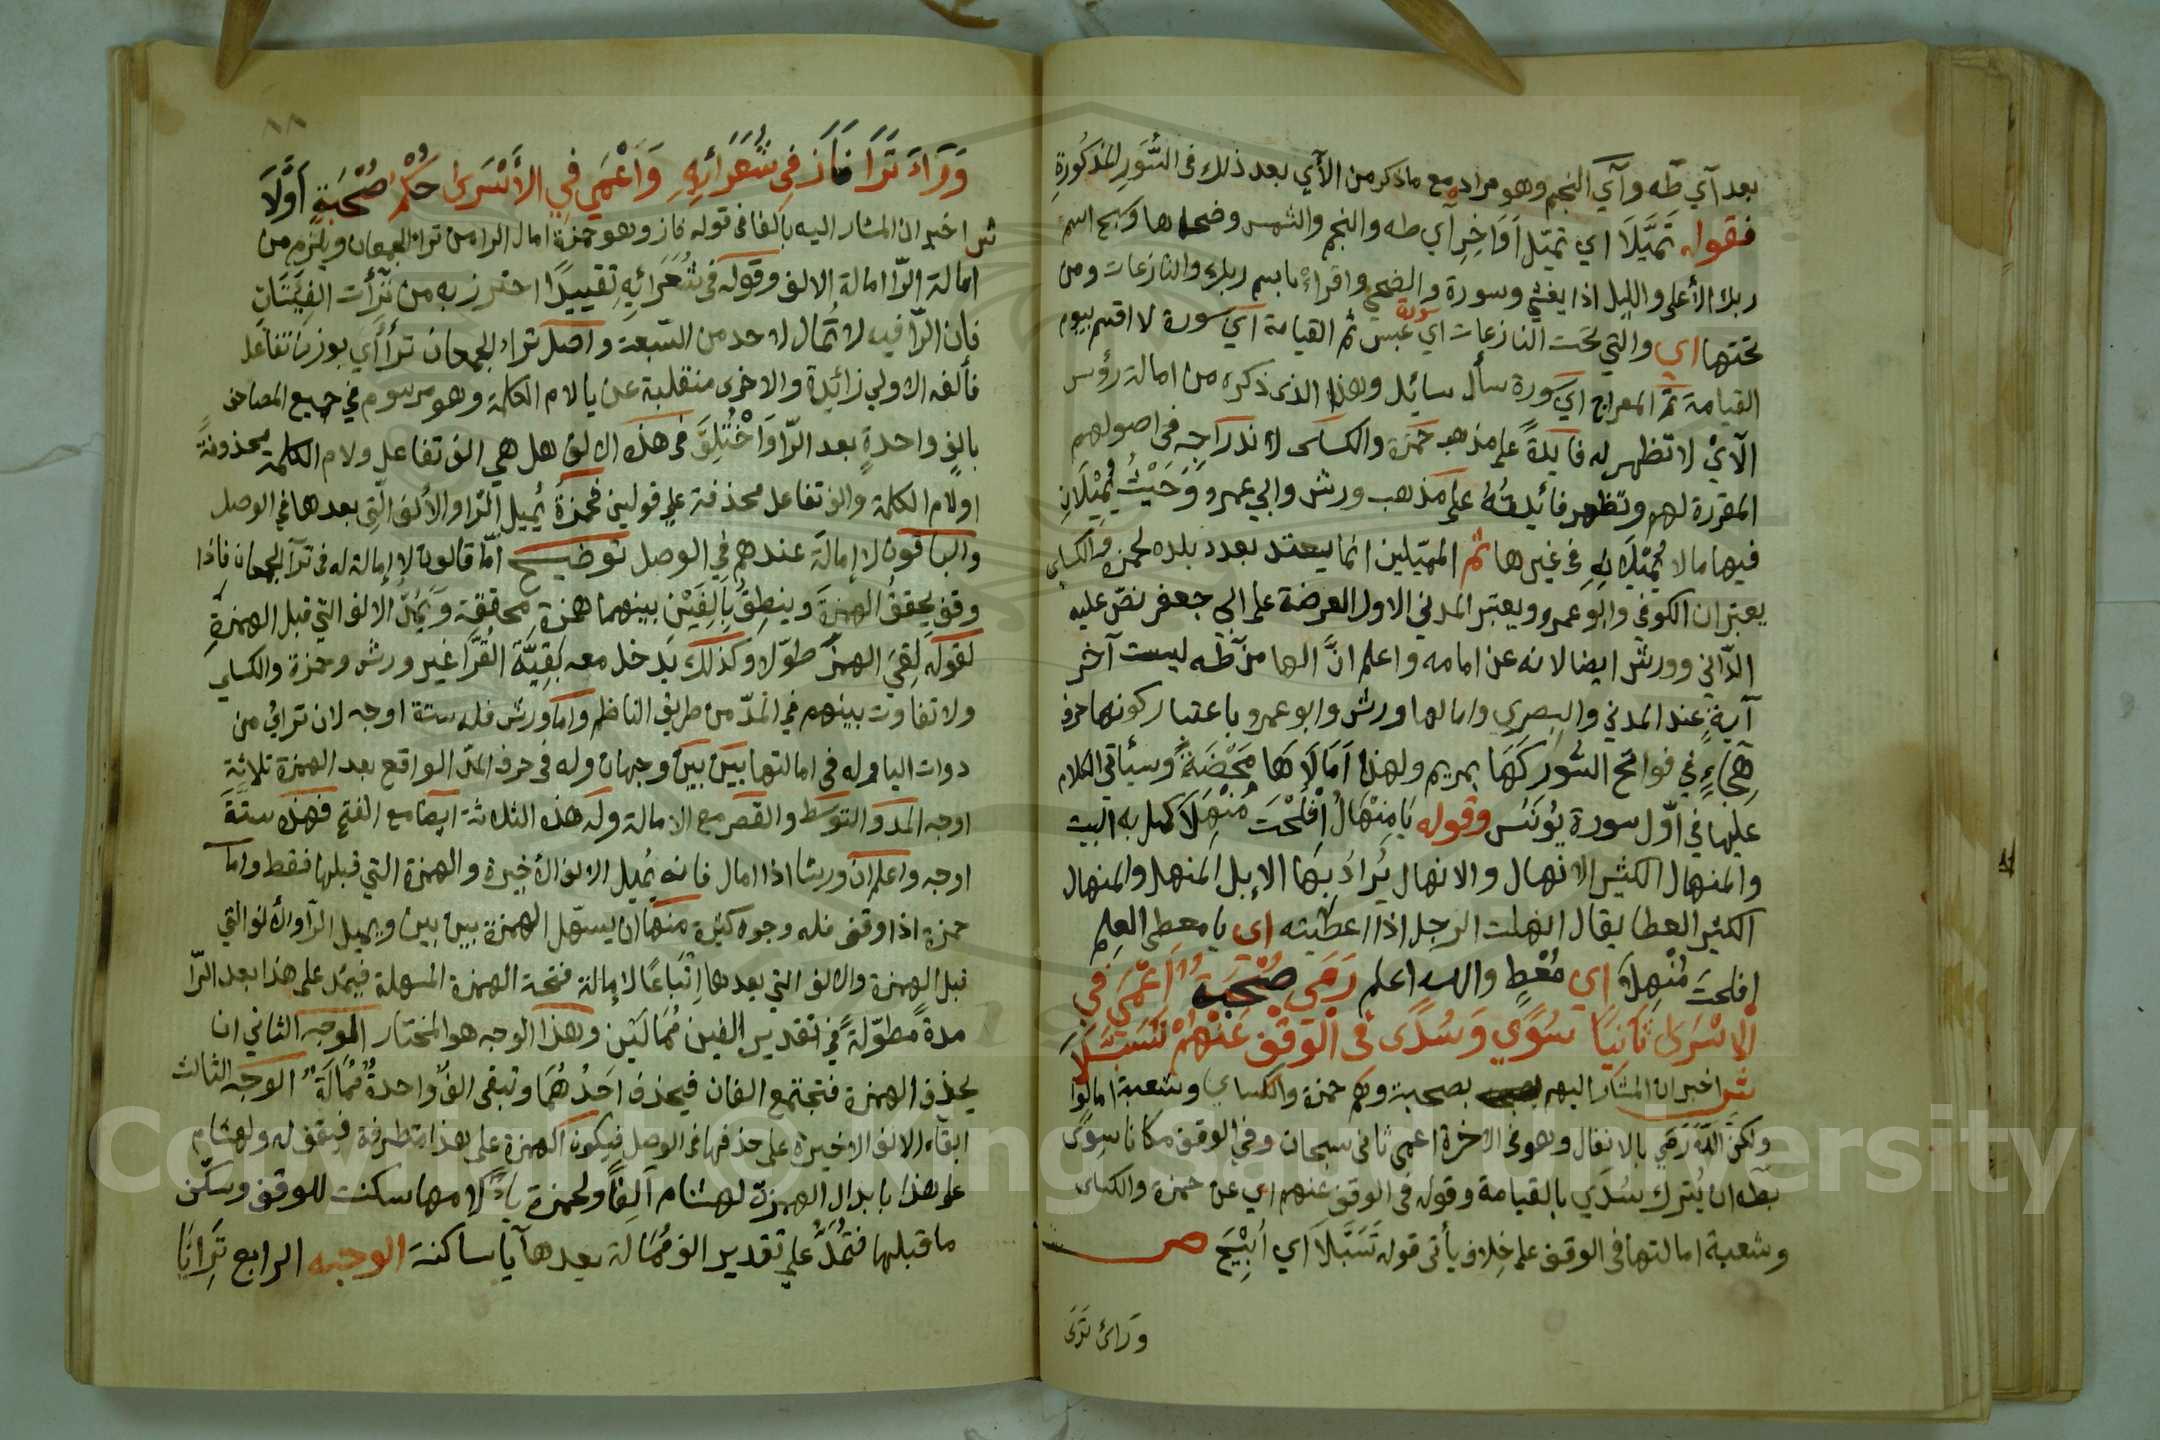 بعد آي طه وآي النجم وهو مراده مع ماذكر من الآي بعد ذلك فى السور المذكورة
فقوله تَمَيَّلَا اي تميّل اَوَاخِر آي طه والنجم والشمس وضحاها وسبح اسم
ربك الأعلى والليل اذا يغشى وسورة والضحى واقراء باسم ربك والنازعات ومن
تحتها اي والتي تحت النازعات اي سورة عبس ثم القيامة اي سورة لا اقسم بيوم
القيامة ثم المعراج اي سورة سأل سايل وهذا الذى ذكره من امالة رؤس
الآيْ لا تظهر له فايدة على مذهب حمزة والكسائى لاندراجه فى اصولهم
المقررة لهم وتظهر فائدته على مذهب ورش وابي عمرو وَحَيْثُ يُمِيْلَانِ
فيها مالا يُمْيِلَانِهِ فى غيرها ثم المميلين انما يعتد بعدد بلده لحمزة والكسائى
يعتبران الكوفي وابو عمرو ويعتبر المدني الاول العرضة على ابي جعفر نصّ عليه
الدّاني وورش ايضا لانه عن امامه واعلم انَّ الها من طه ليست آخر
آيةٍ عند المدني والبصري وامالها ورش وابو عمرو باعتبار كونها حرف
هِجَاءٍ في فواتح السُّوَر كَهَا بمريم ولهذا اَمَالَاهَا مَحْضَةً وسيأتى الكلام
عليها في اوّل سورة يُونَس وقوله يَا مِنْهَالُ اَفْلَحْتَ مُنْهِلَا كمل به البيت
والمنهال الكثير الانهال والانهال يُرادُ بها الإبل المنهل والمنهال
الكثير العطا يقال انهلت الرجل اذا اعطيته اي يا معطي العلم
افلحت مُنْهِلًا اي مُعْطٍ والله اعلم رَمَى صُحْبَةٌ اَعْمَي فِي
الإسْرَى ثَانِيًا سُوًي وَسُدًى فى الْوَقْف عَنْهُمْ تَسَبَّلَا
ش اخبر ان المشار اليهم بصحبة وهم حمزة والكسائى وشعبة امالوا
ولكن اللّه رَمَي بالانفال وهو فى الاخرة اعمى ثانى سبحان وفي الوقف مكانا سوًى
بطه ان يُترك سُدًي بالقيامة وقوله فى الوقف عنهم اي عن حمزة والكسائى
وشعبة امالتها فى الوقف على خلاف يأتى قوله تَسَبَّلَا اي اُبِيْحَ ص
ورائ ترى
٨٨
وَرَاءَ تَرَا فَازَ فِى شُعَرَائِهِ وَاَعْمَي فِي الأَسْرَى حُكْمُ صُحْبَةٍ اَوَّلَا
ش اخبر ان المشار اليه بالفا فى قوله فاز وهو حمزة امال الرا من تراء الجمعان ويلزم من
امالة الرّا امالة الالف وقوله فى شُعَرَائِهِ تقييدًا احترز به من تَرَأَت الفِئَتَانِ
فان الرّا فيه لا تُمال لاحد من السّبعة واصل تراء الجمعان ترأَأَي بوزن تفاعل
فألفه الاولي زائدة والاخرى منقلبة عن يا لام الكلمة وهو مرسوم في جميع المصاحف
بالفٍ واحدةٍ بعد الرّا وَاخْتُلِفَ فى هذه الالف هل هي الف تفاعل ولام الكلمة محذوفةً
او لام الكلمة والف تفاعل محذفة على قولين فحمزةُ يُميل الرّا والألف الّتي بعدها في الوصل
والباقون لا إمالَةَ عندهم في الوصل توضيح أمّا قالون لا إمالة له فى ترآ الجمعان فاذا
وقف يحقق الهمزة وينطِقُ بِالِفَيْن بينهما همزة محققة وَيَمُدّ الالف التي قبل الهمزةِ
لقوله لِقيَ الهمزَ طوّلا وكذلك يَدخل معه بَقِيَّةُ القُرَّا غير ورش وحمزة والكسائي
ولا تفاوت بينهم في المدّ من طريق الناظم واما ورش فله ستة اوجه لان ترائ من
دوات اليا وله فى امالتها بَيْن بَيْن وجهان وله فى حرف المدّ الواقع بعد الهمزة ثلاثة
اوجه المد والتوسط والقصر مع الامالة وله هذه الثلاثة ايضا مع الفتح فهذه ستّةُ
اوجه واعلم ان ورشا اذا امال فانه يُميل الالف الأخيرة والهمزة التي قبلها فقط واما
حمزة اذا وقف فله وجوه كثيرة منها ان يسهّل الهمزة بين بين ويميل الرّا والألف التي
قبل الهمزة والالف التي بعدها اِتْبَاعًا لإمالة فتحة الهمزة المسهلة فيمّد على هذا بعد الرّا
مدةً مطوّلةً في تقدير الفين مُمَالَتَيْن وهذا الوجه هو المختار الوجه الثاني ان
يحذف الهمزة فتجتمع الفان فيحذف اَحَدُهُمَا وتبقى الفٌ واحدةٌ مُمَالَةٌ الوجه الثالث
ابقاء الالف الاخيرة على حذفها فى الوصل فيكون الهمزة على هذا متطرفة فيقف له ولهشام
على هذا بابدال الهمزة لهشام آلِفًا ولحمزة ياءً لامها سكنت للوقف وسكّن
ما قبلها فتُمَدُّ على تقدير الف مُمَالة بعدها يا ساكنة الوجه الرابع تَرَايَا
Copyright © King Saud University